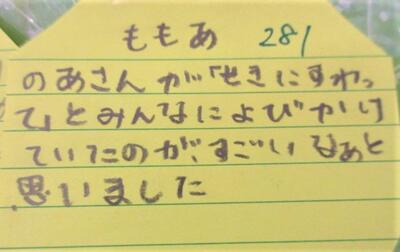 ももあ 281
のあさんが「せきにすわっ
て」とみんなによびかけ
ていたのが、すごいなあと
思いました